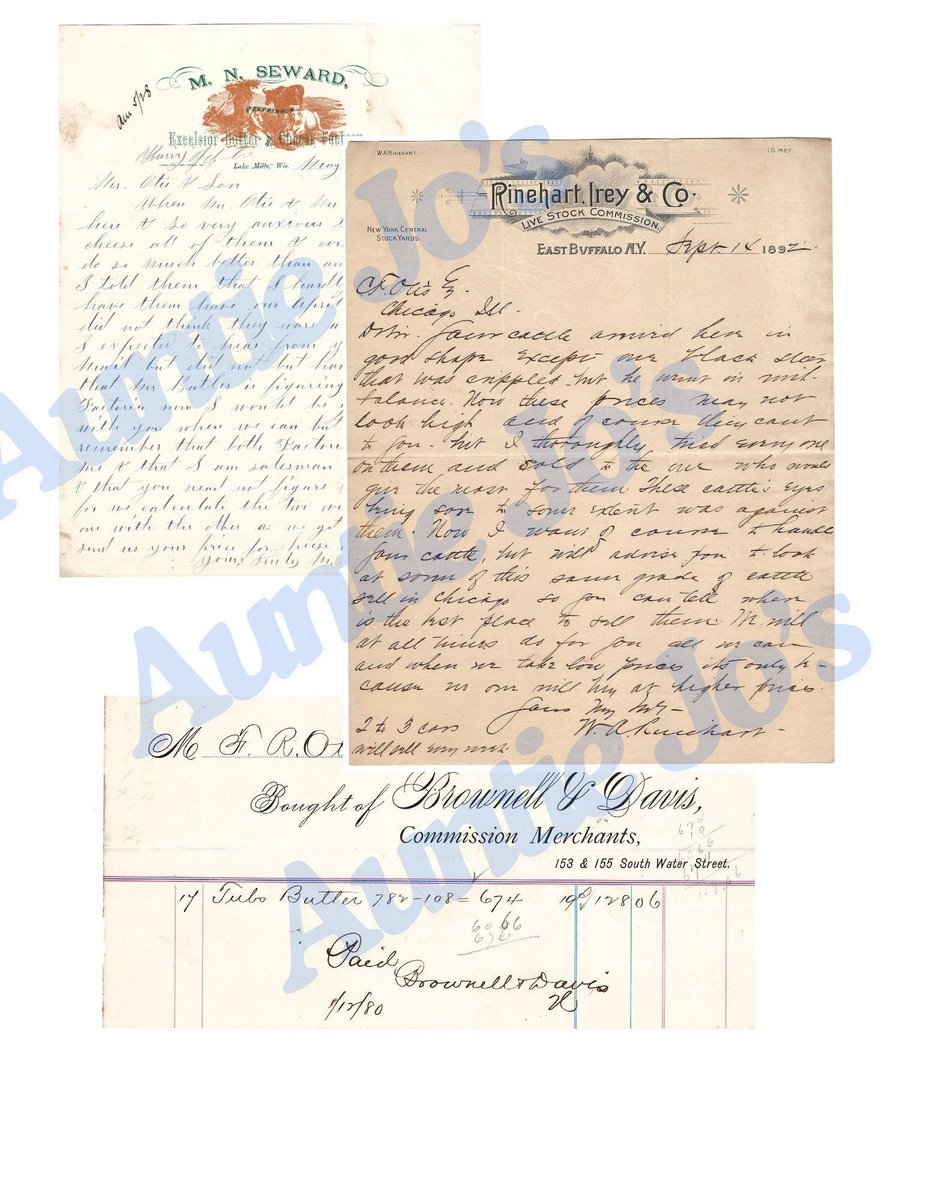 M. N. SEWARD,
PROPRIETOR
Excelsior Butter & Cheese Fact
Lake Mills, Wis. May
Ans 5/28
Mr. Otis & Son
When Mr. Otis & Mrs
here & so very anxious
cheese all of them &
do so much better than an
I told them that I hardl
have them leave our April
did not think they were a
I expected to hear from y
but did not but ha
that Mr Butler is figuring
Factories now I would be
with you when we can but
remember that both Factore
me & that I am salesman
& that you need not figure
for we calculate the two
one with the other as we get
send us your price for cheese
Yours Truly
W.A. RINEHART.
I.S. IREY.
Rinehart, Irey & Co.
LIVE STOCK COMMISSION.
NEW YORK CENTRAL
STOCK YARDS.
EAST BUFFALO N.Y. Sept. 14 1892.
Otis
Chicago Ill.
D Sir. Your cattle arrived here in
good shape except one black steer
that was crippled. but he went in with
balance. Now these prices may not
look high and of course they cant
to you. but I thoroughly tried every one
on them and sold to the one who would
give the most for them These cattle's eyes
being sore to some extent was against
them. Now I want of course to handle
your cattle, but will advise you to look
at some of this same grade of cattle
sell in Chicago so you can tell where
is the best place to sell them. We will
at all times do for you all we can
and when we take low prices its only be-
cause no one will buy at higher prices.
Yours
W. A. Rinehart
2 to 3 cars
will sell every week
M F. R. Ot
Bought of Brownell & Davis,
Commission Merchants,
153 & 155 South Water Street.
17 Tubs Butter 782-108=674 19 128 06
Paid
Brownell & Davis
1/12/80
Auntie Jo's
Auntie Jo's
Auntie Jo's